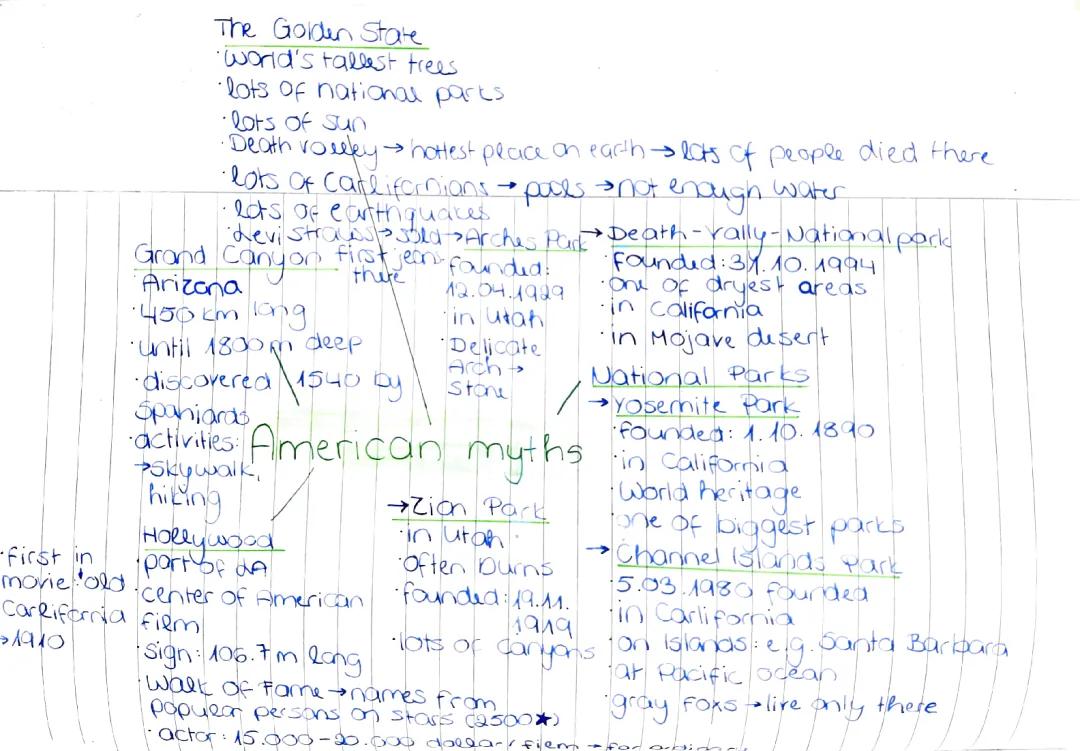 The Golden State
·World's tallest trees
·lots of national parks
·lots of sun
·Death valley → hottest place on earth → lots of people died there
·lots of Carlifornians → pools → not enough water
·lots of earthquakes
·Levi Strauss → sold first jeans there
Grand Canyon
Arizona
·450 km long
·until 1800m deep
·discovered 1540 by
Spaniards
·activities:
→ skywalk,
hiking
American myths
Hollywood
·part of LA
·center of American
film
·sign: 106.7m long
·Walk of Fame → names from
popular persons on stars (2500★)
·actor: 15.000-20.000 dollar/film →
·first in
movie: old
Carlifornia
→ 1910
→ Arches Park
founded:
12.04.1929
·in Utah
·Delicate
Arch →
Stone
→ Zion Park
·in Utah
·often burns
·founded: 19.11.
1919
·lots of canyons
National Parks
→ Yosemite Park
·founded: 1.10.1890
·in California
·World heritage
·one of biggest parks
→ Channel Islands Park
·5.03.1980 founded
·in Carlifornia
·on Islands: e.g. Santa Barbara
·at Pacific ocean
·gray foxs → live only there
→ Death-Vally-Nationalpark
·founded: 31.10.1994
·one of dryest areas
·in California
·in Mojave desert